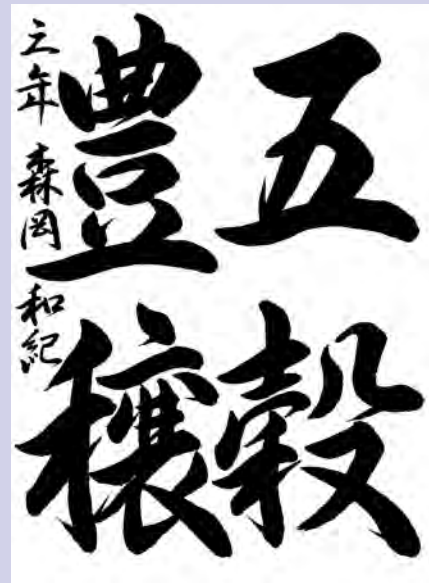 五穀
豊穣
三年 森岡 和紀